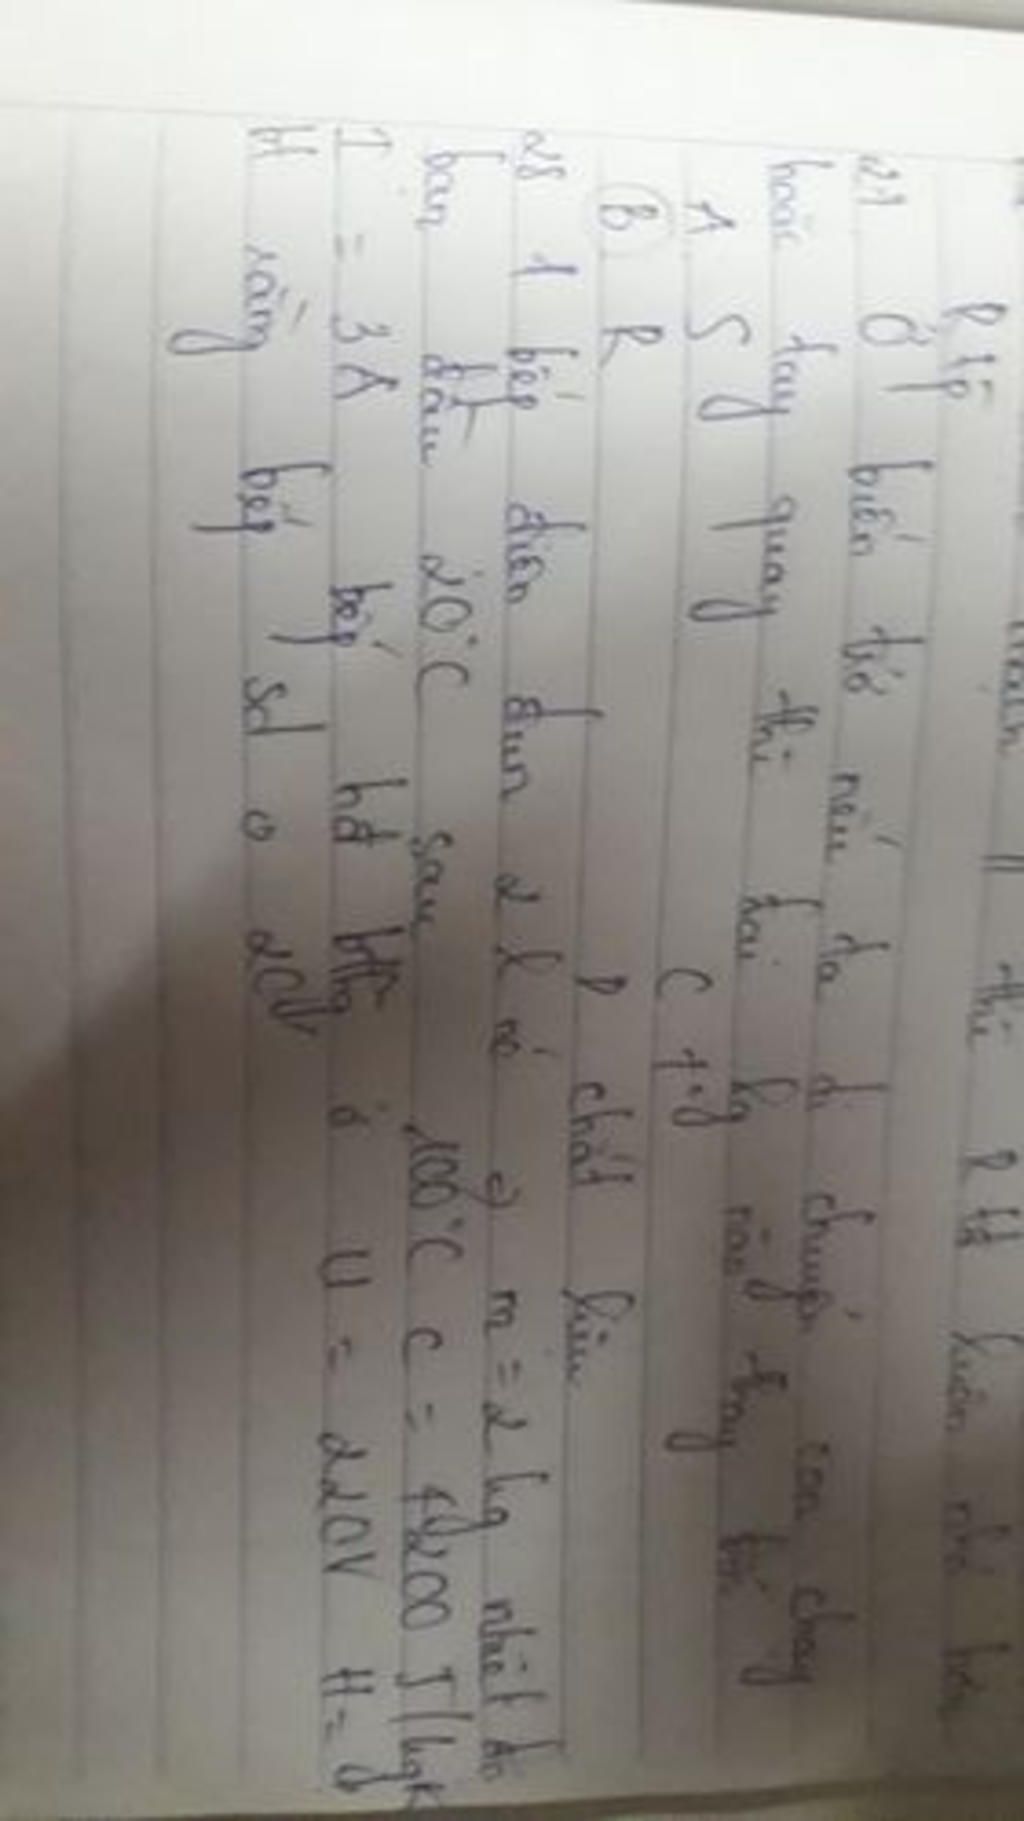 thì R tđ luôn nhỏ hơn
R tp
27 Ở biến trở nếu ta di chuyển con chạy
hoặc tay quay thì đại lg nào thay
A S C
B R D chất liệu
28 1 bếp điện đun 2 l nó m = 2 kg nhiệt độ
ban đầu 20°C sau 100°C C = 4200 J/kgK
I = 3A bếp hđ bthg ở U = 220V H=
rằng bếp sd